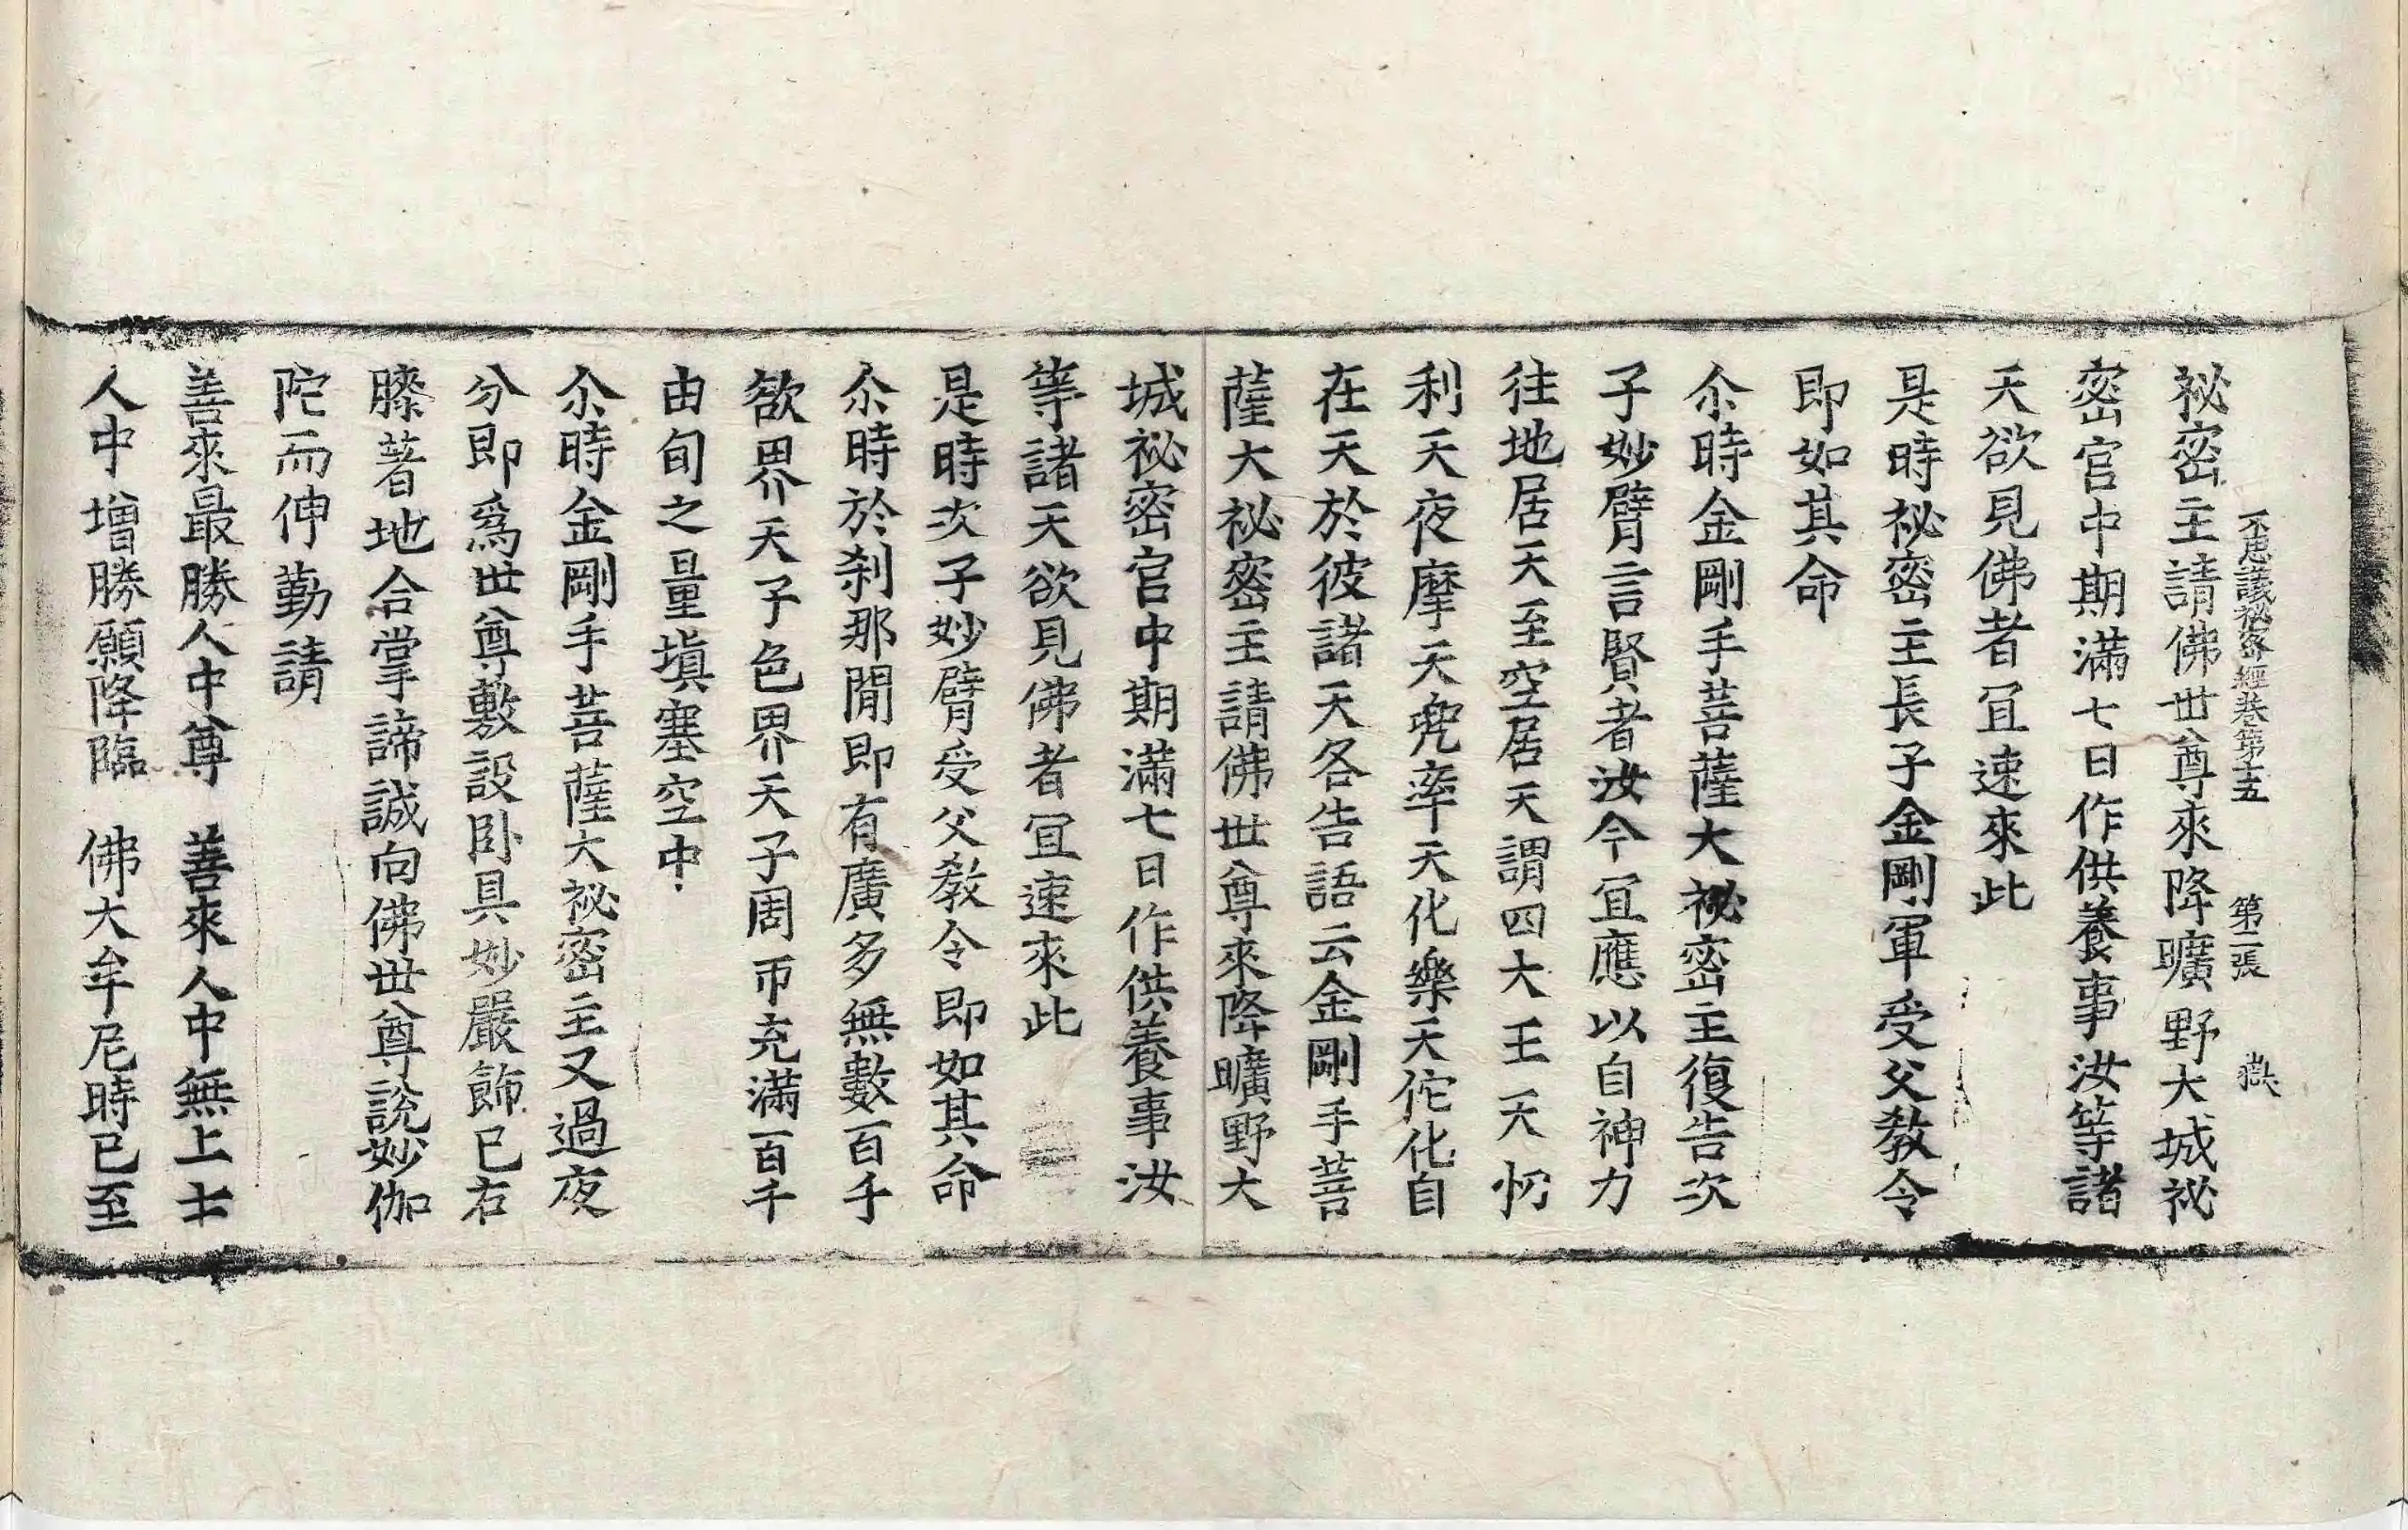 不思議祕密經卷第十五　第二張　嶽
祕密主請佛世尊來降曠野大城祕
密宫中期滿七日作供養事汝等諸
天欲見佛者冝速來此
是時祕密主長子金剛軍受父教令
即如其命
尒時金剛手菩薩大祕密主復告次
子妙臂言賢者汝今冝應以自神力
往地居天至空居天謂四大王天忉
利天夜摩天兜率天化樂天佗化自
在天於彼諸天各告語云金剛手菩
薩大祕密主請佛世尊來降曠野大
城祕密宫中期滿七日作供養事汝
等諸天欲見佛者冝速來此
是時次子妙臂受父教令即如其命
尒時於刹那閒即有廣多無數百千
欲界天子色界天子周帀充滿百千
由旬之量塡塞空中
尒時金剛手菩薩大祕密主又過夜
分即爲世尊敷設卧具妙嚴飾已右
膝著地合掌諦誠向佛世尊說妙伽
陀而伸勤請
善來最勝人中尊　善來人中無上士
人中增勝願降臨　佛大牟尼時已至